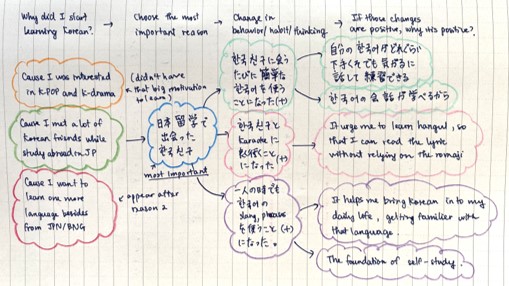 Why did I start
learning Korean?
Choose the most
important reason
Change in
behavior/habit/thinking
If those changes
are positive, why its positive?
Cause I was interested
in K-POP and K-drama
(didn't have
that big motivation
to learn)
Cause I met a lot of
Korean friends while
study abroad in JP
Cause I want to
learn one more
language besides
from JPN/ENG
appear after
reason 2
日本留学で
出会った
한국친구
most important
한국친구に会う
たびに簡単な
한국어を使う
ことになった(+)
한국친구と
karaokeに
行くことに
になった(+)
一人の時でも
한국어の
slang, phrase
を使うこと(+)
になった。
自分の한국어がどれくらい
下手くそでも気がるに
話して練習できる
한국어の会話が学べるから
It urge me to learn hangul, so
that I can read the lyric
without relying on the romaji
It helps me bring Korean in to my
daily life, getting familier with
that language.
The foundation of self-study.